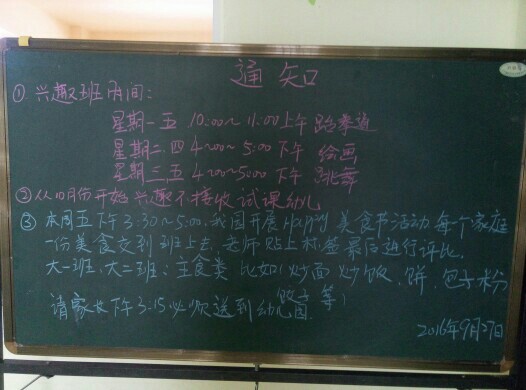 通知
① 兴趣班时间:
星期一.五 10:00~11:00上午 跆拳道
星期二.四 4:00~5:00下午 绘画
星期三.五 4:00~5:00下午 跳舞
② 从10月份开始兴趣不接收试课幼儿
③ 本周五下午3:30~5:00.我园开展 美食节活动.每个家庭
一份美食交到班上去.老师贴上标签最后进行评比.
大一班.大二班:主食类 比如炒面 炒饭.饼.包子 粉
饺子等
请家长下午3:15必须送到幼儿园!
2016年9月27日